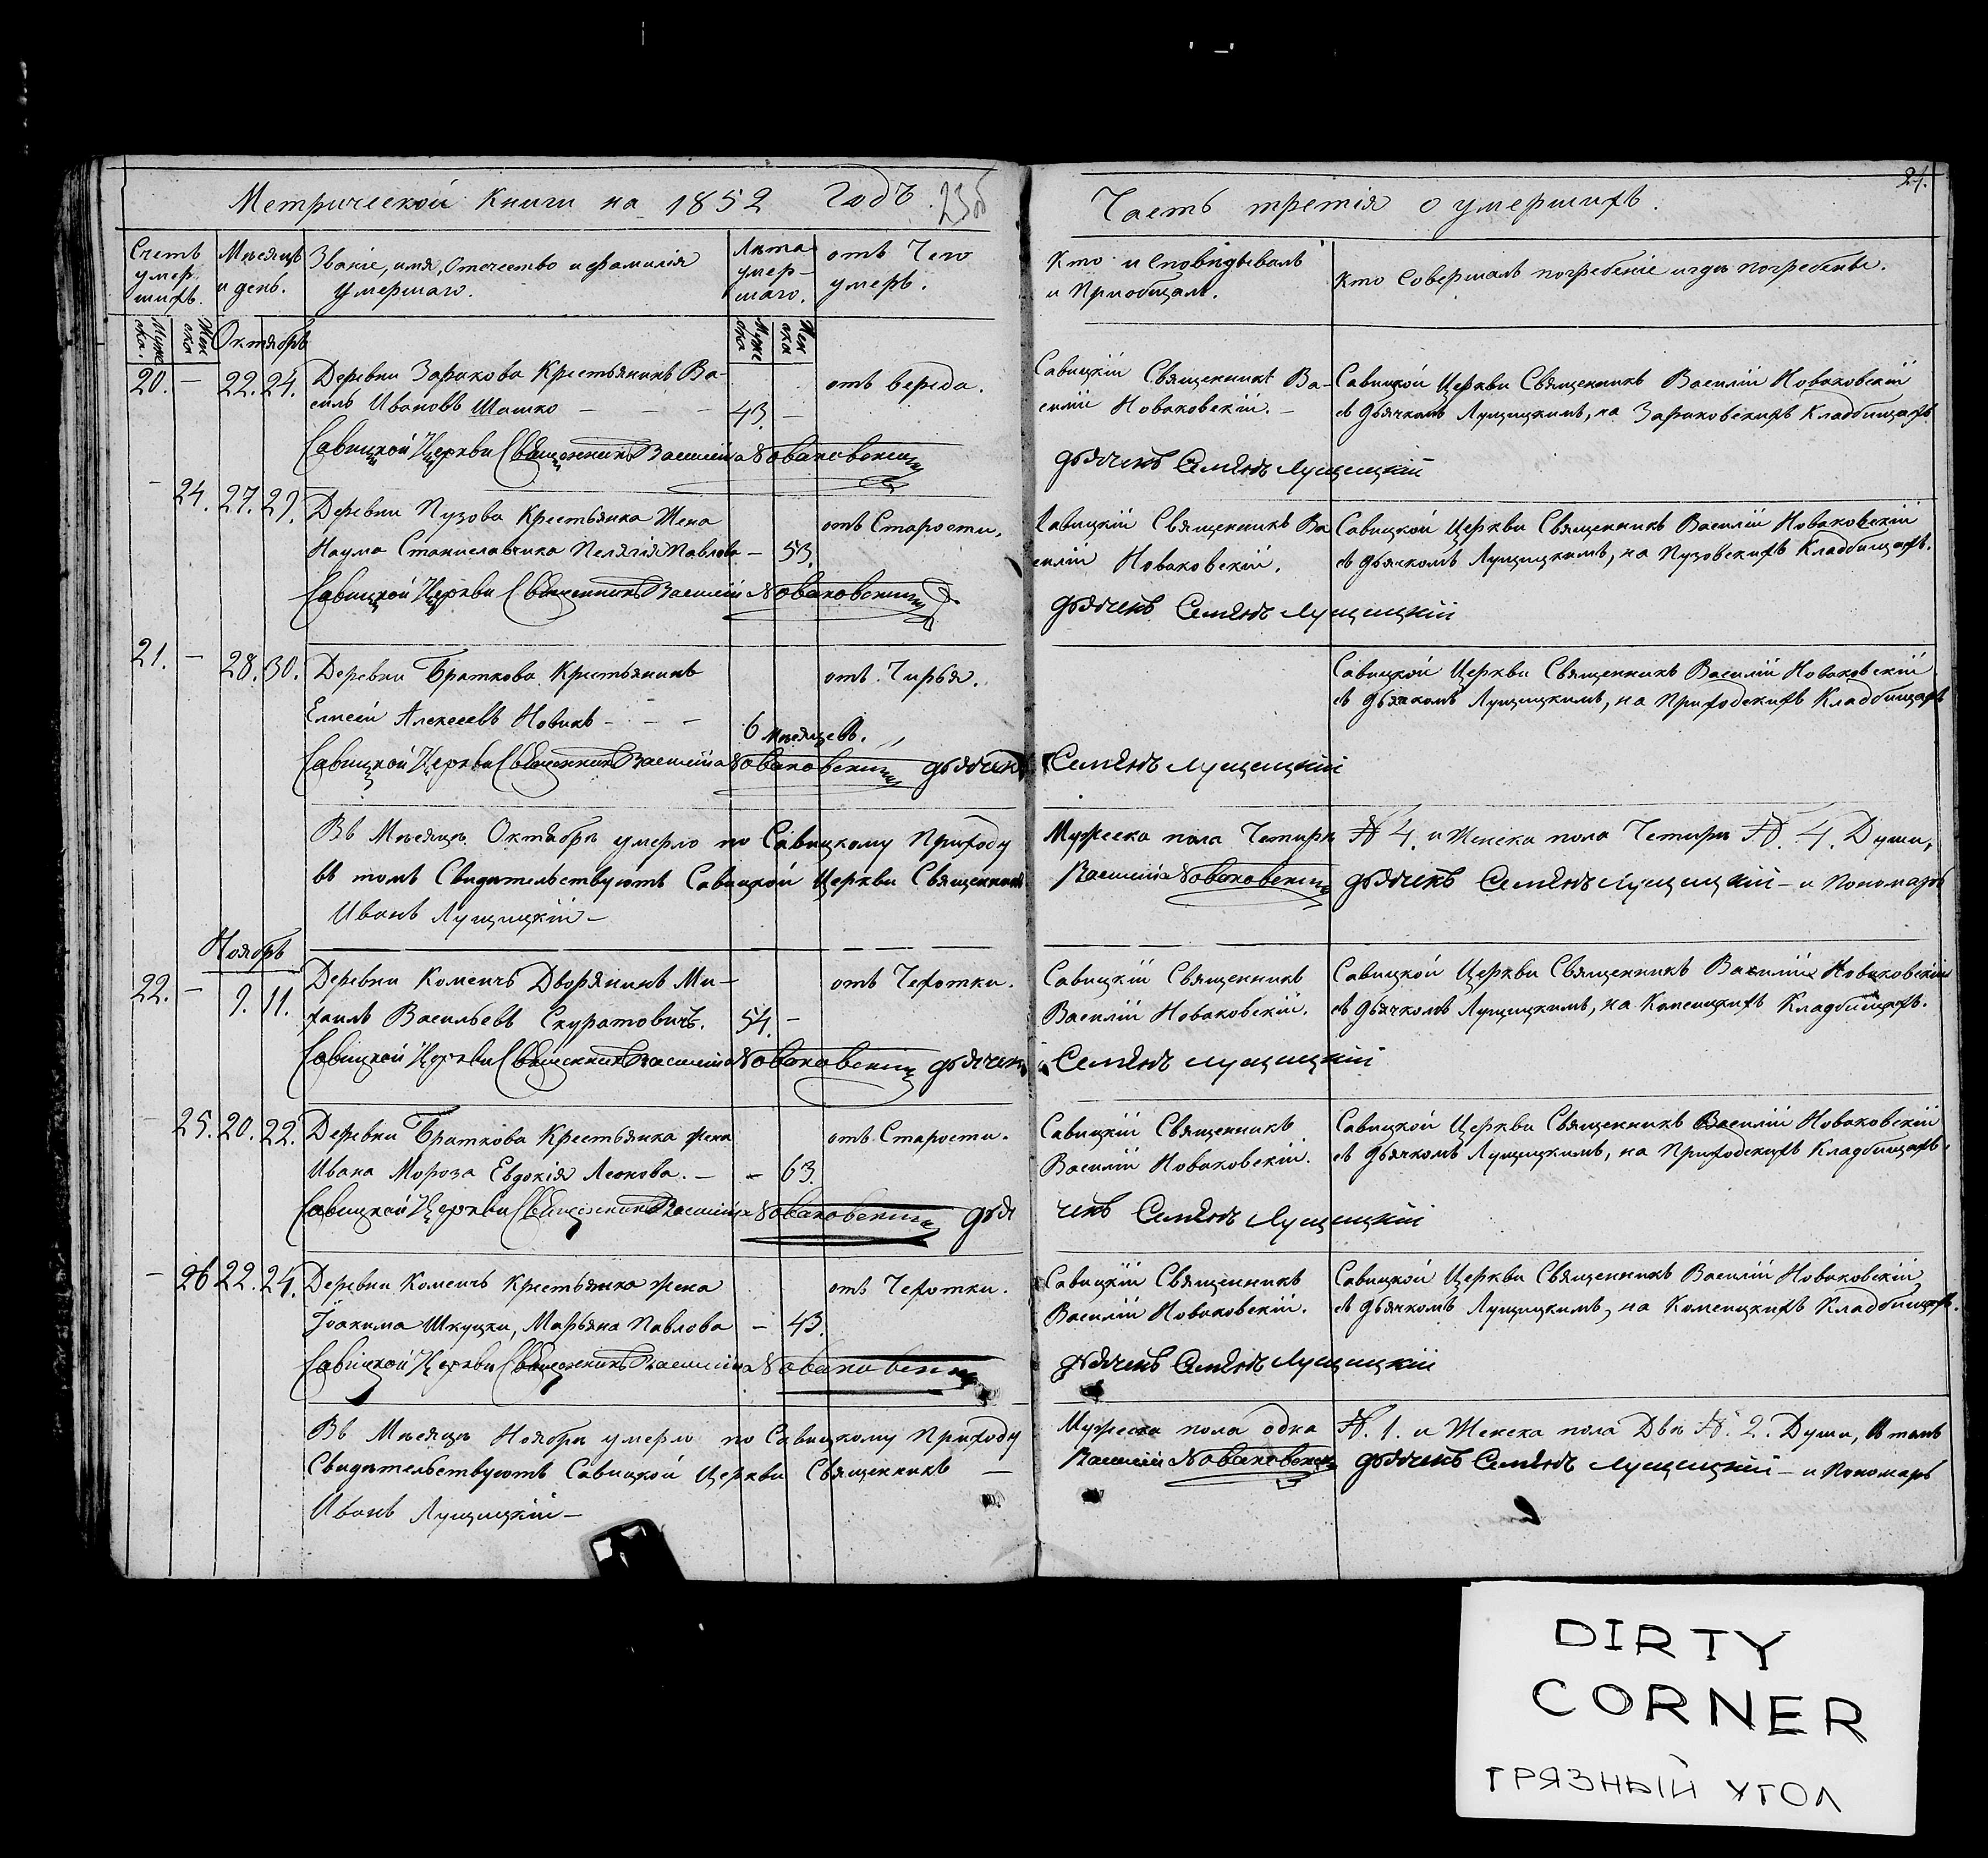 Метрической Книги на 1852 Годъ. 23об
Счетъ умер шихъ.
Мѣсяцъ и день.
Званіе, имя, Отечество и фамилія умершаго.
Лѣта умер-шаго.
отъ Чего умеръ.
Муже ска.
Жен ска
Октябрь
Муже ска
Жен ска
20. — 22. 24. Деревни Заракова Крестьянинъ Ва-
силь Ивановъ Шашко — — — 43. — отъ вереда.
Савицкой Церкви Священникъ Василій Новаковскій
— 24. 27. 29. Деревни Пузова Крестьянка Жена
Наума Станиславчика Пелягія Павлова — 53. отъ Старости.
Савицкой Церкви Священникъ Василій Новаковскій
21. — 28. 30. Деревни Браткова Крестьянинъ отъ Чирья.
Елисей Алексеевъ Новикъ — — — 6 мѣсяцевъ.
Савицкой Церкви Священникъ Василій Новаковскій дьячекъ
Въ Мѣсяцѣ Октябрѣ умерло по Савицкому Приходу
въ томъ Свидѣтельствуютъ Савицкой Церкви Священникъ
Иванъ Лущицкій —
Ноябрь
22. — 9. 11. Деревни Коменчъ Дворянинъ Ми- отъ Чехотки.
хаилъ Васильевъ Скуратовичъ. 54. —
Савицкой Церкви Священникъ Василій Новаковскій дьячекъ
— 25. 20. 22. Деревни Браткова Крестьянка жена отъ Старости.
Ивана Мороза Евдокія Леонова. — — 63.
Савицкой Церкви Священникъ Василій Новаковскій дья
— 26 22. 24. Деревни Коменчъ Крестьянка жена отъ Чехотки.
Іоакима Шкуцки, Марьяна Павлова — 43.
Савицкой Церкви Священникъ Василій Новаковскій
Въ Мѣсяцѣ Ноябрѣ умерло по Савицкому Приходу
Свидѣтельствуютъ Савицкой Церкви Священникъ —
Иванъ Лущицкій —
24.
Часть третія о умершихъ.
Кто исповѣдывалъ и Приобщалъ.
Кто Совершалъ погребеніе и гдѣ погребены.
Савицкій Священникъ Ва- Савицкой Церкви Священникъ Василій Новаковскій
силій Новаковскій. — съ дьячкомъ Лущицкимъ, на Зараковскихъ Кладбищахъ
дьячекъ Семіонъ Лущицкій
Савицкій Священникъ Ва Савицкой Церкви Священникъ Василій Новаковскій
силій Новаковскій. съ дьячкомъ Лущицкимъ, на Пузовскихъ Кладбищахъ.
дьячекъ Семіонъ Лущицкій
Савицкой Церкви Священникъ Василій Новаковскій
съ дьячкомъ Лущицкимъ, на Приходскихъ Кладбищахъ
Семіонъ Лущицкій
Мужеска пола Четыри № 4. и Женска пола Четыри №. 4. Души,
Василій Новаковскій дьячекъ Семіонъ Лущицкій — и Пономарь
Савицкій Священникъ Савицкой Церкви Священникъ Василій Новаковскій
Василій Новаковскій. съ дьячкомъ Лущицкимъ, на Коменицкихъ Кладбищахъ.
Семіонъ Лущицкій
Савицкій Священникъ Савицкой Церкви Священникъ Василій Новаковскій
Василій Новаковскій. съ дьячкомъ Лущицкимъ, на Приходскихъ Кладбищахъ.
чекъ Семіонъ Лущицкій
Савицкій Священникъ Савицкой Церкви Священникъ Василій Новаковскій
Василій Новаковскій. съ дьячкомъ Лущицкимъ, на Коменицкихъ Кладбищахъ.
дьячекъ Семіонъ Лущицкій
Мужеска пола одна №. 1. и Женска пола Двѣ №. 2. Души, въ томъ
Василій Новаковскій дьячекъ Семіонъ Лущицкій — и Пономарь
DIRTY
CORNER
ГРЯЗНЫЙ УГОЛ